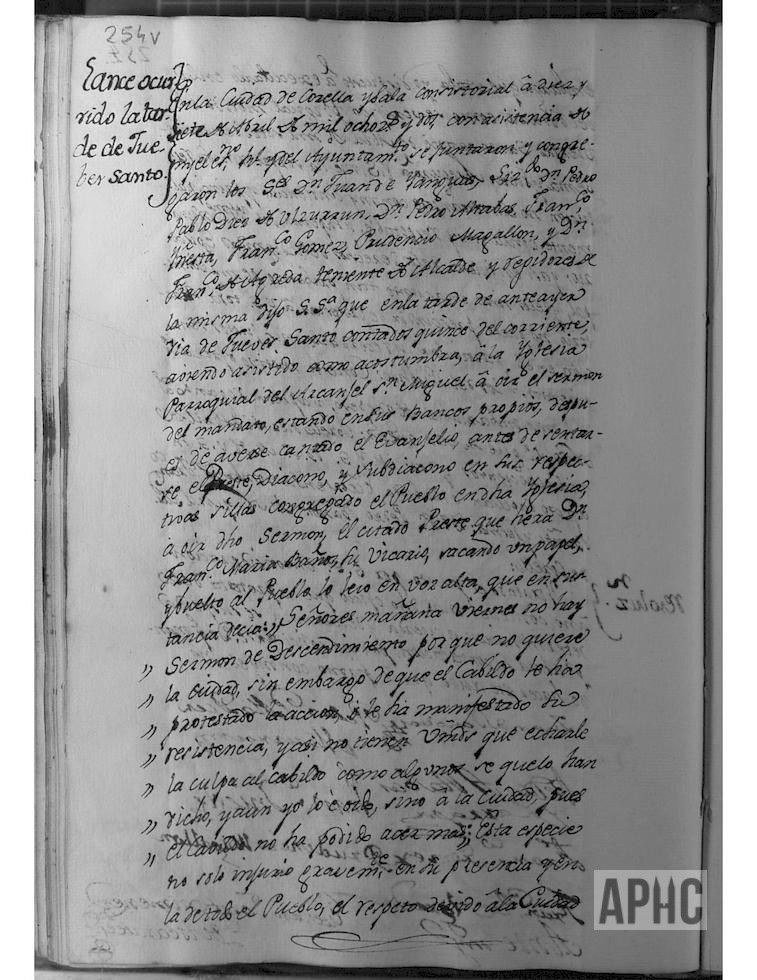 254v
Lance ocur-
rido la tar-
de de Jue-
bes Santo.
En la Ciudad de Corella y Sala Consistorial â diez y
siete de Abril de mil ochoz.s y dos, con asistencia de
mi el es.no R.l y del Ayuntam.to se juntaron y congre-
garon los S.es D.n Juan de Yanguas, D.n Pedro
Pablo Diez de Ulzurrun, D.n Pedro Fran.co
Fran.co Gomez, Prudencio Magallon, y D.n
Fran.co de Agreda teniente de Alcalde y regidores de
la misma dijo S. S.a que en la tarde de anteayer
dia de Jueves Santo contados quince del corriente,
aviendo asistido como acostumbra, â la Yglesia
Parroquial del Arcanjel S.n Miguel â oir el sermon
del mandato, estando en sus Bancos propios, despu-
es de averse cantado el Evanjelio, antes de sentar-
se el Preste, Diacono, y Subdiacono en sus respec-
tivas sillas congregado el Pueblo en dha Yglesia,
â oir dho Sermon, el citado Preste que hera D.n
Fran.co Maria Baños, su Vicario, sacando un papel,
y buelto al Pueblo lo leio en voz alta, que en sus-
tancia decia: „ Señores mañana Viernes no hay
„ Sermon de Descendimiento por que no quiere
„ la ciudad, sin embargo de que el Cabildo le ha
„ protestado la accion, y le ha manifestado su
„ resistencia, y asi no tienen Vmds que echarle
„ la culpa al cabildo como algunos se que lo han
„ dicho, y aun yo lo é oido, sino â la Ciudad, pues
„ el Cabildo no ha podido acer mas; Esta especie
no solo injurio gravem.te en su presencia y en
la de todo el Pueblo, el respeto devido â la Ciudad
APHC